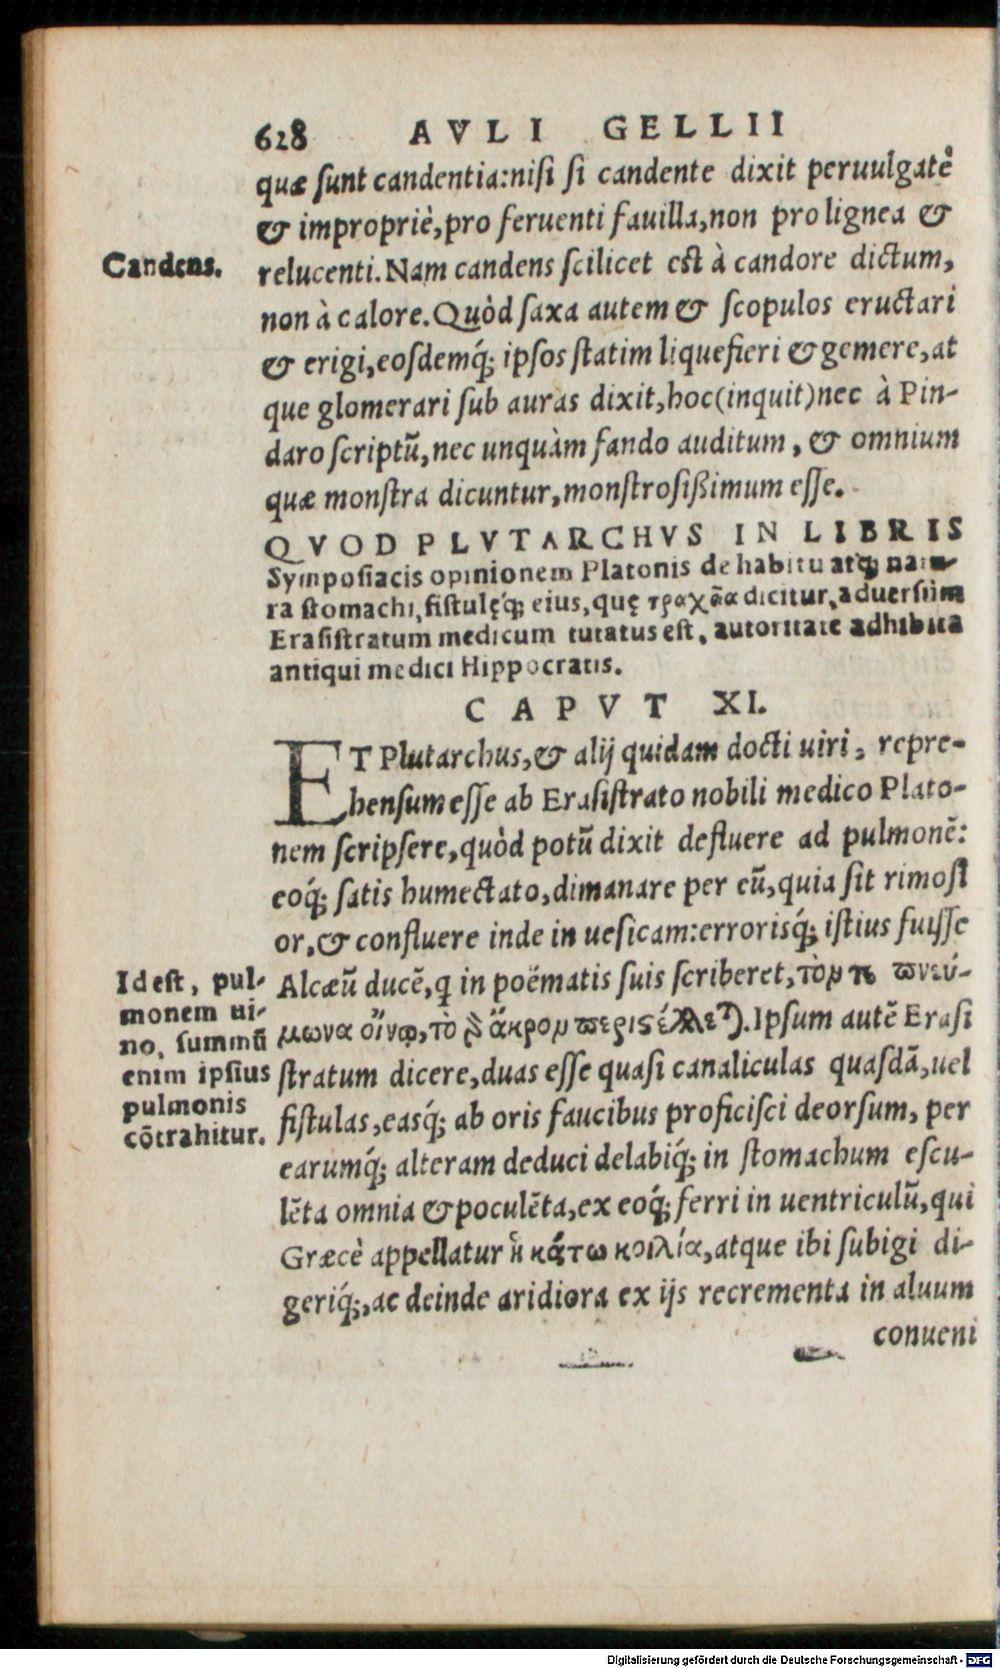 628 AVLI GELLII
quæ sunt candentia:nisi si candente dixit peruulgatè
& impropriè,pro feruenti fauilla,non pro lignea &
Candens.
relucenti.Nam candens scilicet est à candore dictum,
non à calore.Quòd saxa autem & scopulos eructari
& erigi,eosdemq́; ipsos statim liquefieri & gemere,at
que glomerari sub auras dixit,hoc(inquit)nec à Pin-
daro scriptũ,nec unquàm fando auditum, & omnium
quæ monstra dicuntur,monstrosißimum esse.
QVOD PLVTARCHVS IN LIBRIS
Symposiacis opinionem Platonis de habitu atq; natu-
ra stomachi, fistulęq́; eius, quę τραχεῖα dicitur, aduersum
Erasistratum medicum tutatus est, autoritate adhibita
antiqui medici Hippocratis.
CAPVT XI.
ET Plutarchus,& alij quidam docti uiri, repre-
hensum esse ab Erasistrato nobili medico Plato-
nem scripsere,quòd potũ dixit defluere ad pulmonẽ:
eoq́; satis humectato,dimanare per eũ,quia sit rimosi
or,& confluere inde in uesicam:errorisq́; istius fuisse
Alcæũ ducẽ,q in poëmatis suis scriberet,τὸν πνεύ-
μωνα οἴνῳ,τὸ δ᾽ ἄκρον περιστέλλεται.Ipsum autẽ Erasi
stratum dicere,duas esse quasi canaliculas quasdã,uel
fistulas,easq́; ab oris faucibus proficisci deorsum, per
earumq́; alteram deduci delabiq́; in stomachum escu-
lẽta omnia & poculẽta,ex eoq́; ferri in uentriculũ,qui
Græcè appellatur ἡ κάτω κοιλία,atque ibi subigi di-
geriq́;,ac deinde aridiora ex ijs recrementa in aluum
conueni
Id est, pul-
monem ui-
no, summũ
enim ipsius
pulmonis
cõtrahitur.
Digitalisierung gefördert durch die Deutsche Forschungsgemeinschaft - DFG